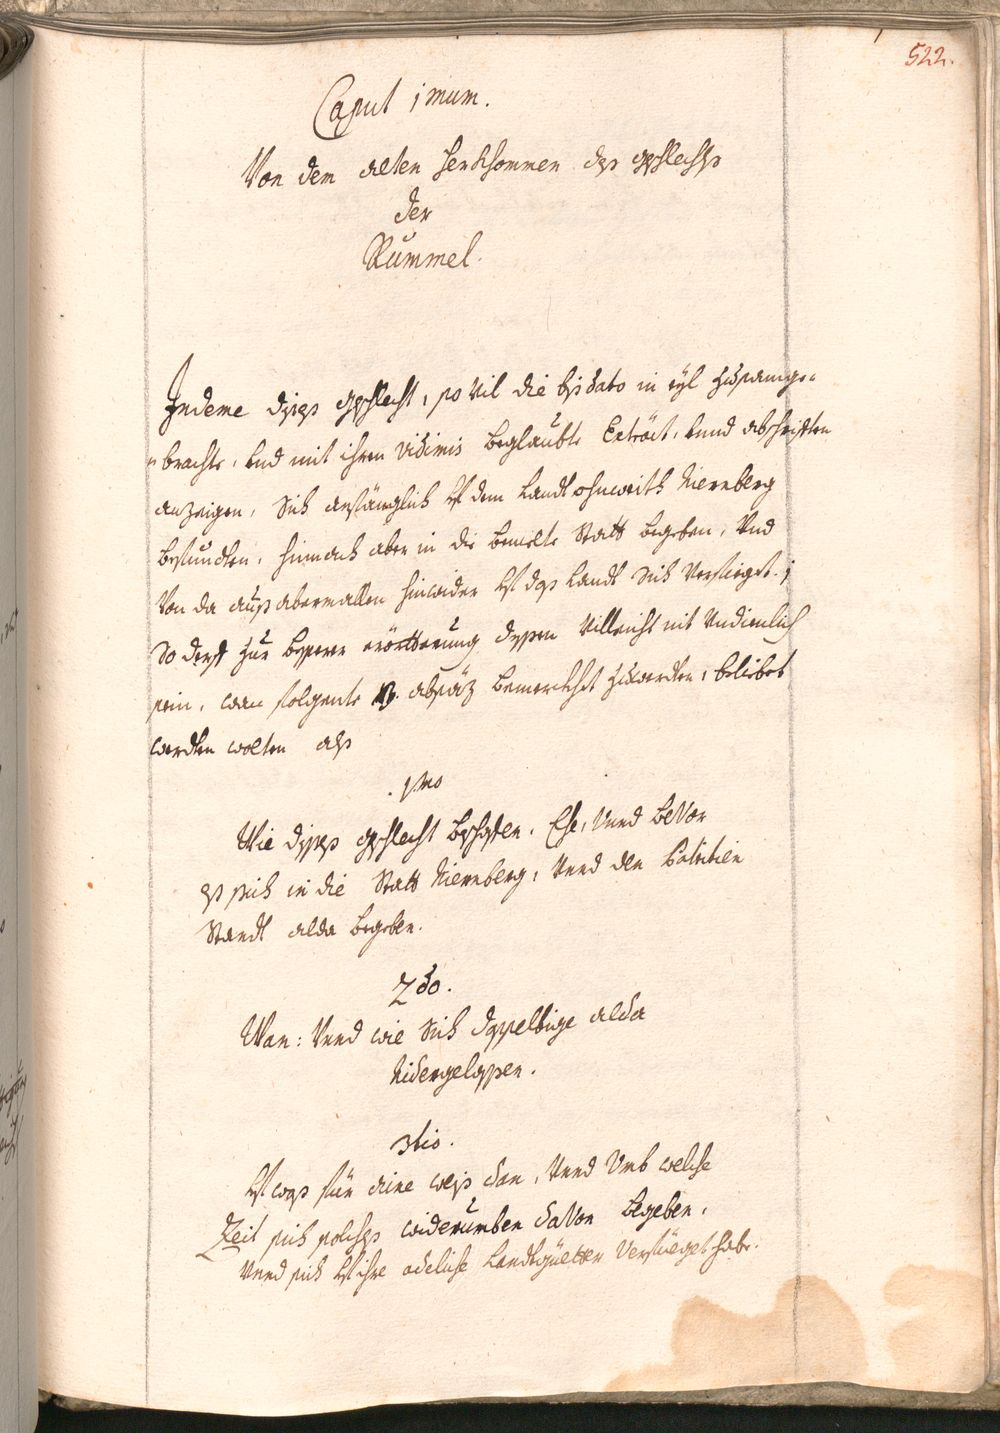 522.
Caput 1mum.
Von dem alten herkhommen des gschlechts
der
Rummel.
Indeme dises gschlecht, so vil die bis dato in eyl zusamge-
brachte, und mit ihren vidimis beglaubte Extract, unnd abschrifften
anzeigen, sich anfänglich uf dem Landt ohnweith Niernberg
befunden, hernach aber in die bemelte Statt begeben, Und
Von da aus abermallen hinwider uf das Landt sich verfüeget;
So derfft zur besseren erörtterung dessen villeicht nit undienlich
sein, wan folgente absäz bemerckhet zuwerden, beliebet
werden wolten als
1mo
Wie dises gschlecht bschaffen, Ehe, Unnd beVor
es sich in die Statt Niernberg, Unnd den Patritien
Standt alda begeben.
2do.
Wan: Unnd wie Sich dasselbige alda
Nidergelassen.
3tio.
Uf was für eine weis dan, Unnd Umb welche
Zeit sich solches widerumben daVon begeben,
Unnd sich uf ihre adeliche Landtgüetter Verfüeget habe.